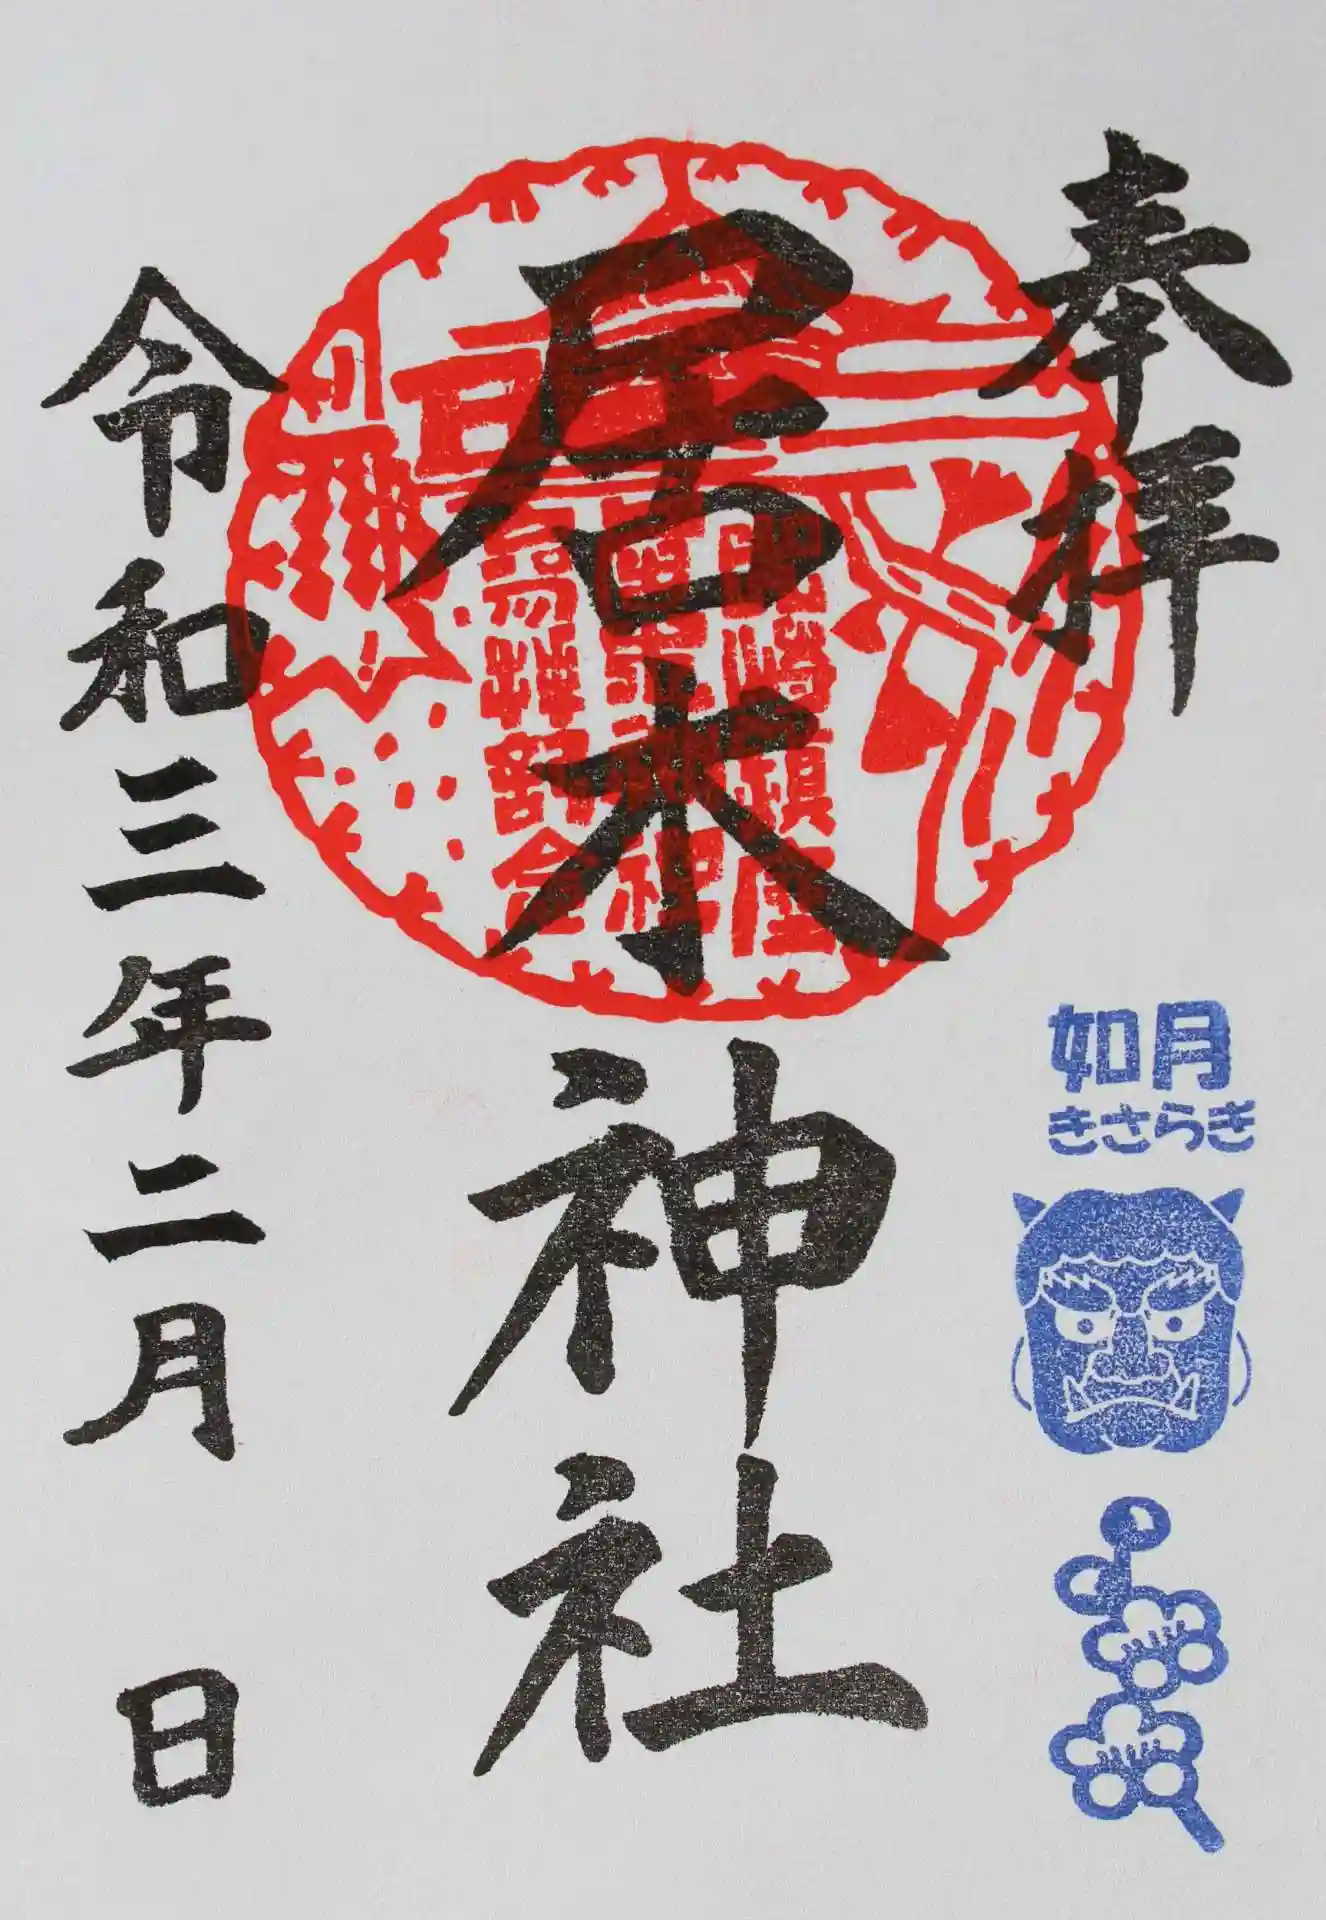 奉拝
如月
きさらぎ
居木神社
令和三年二月　日